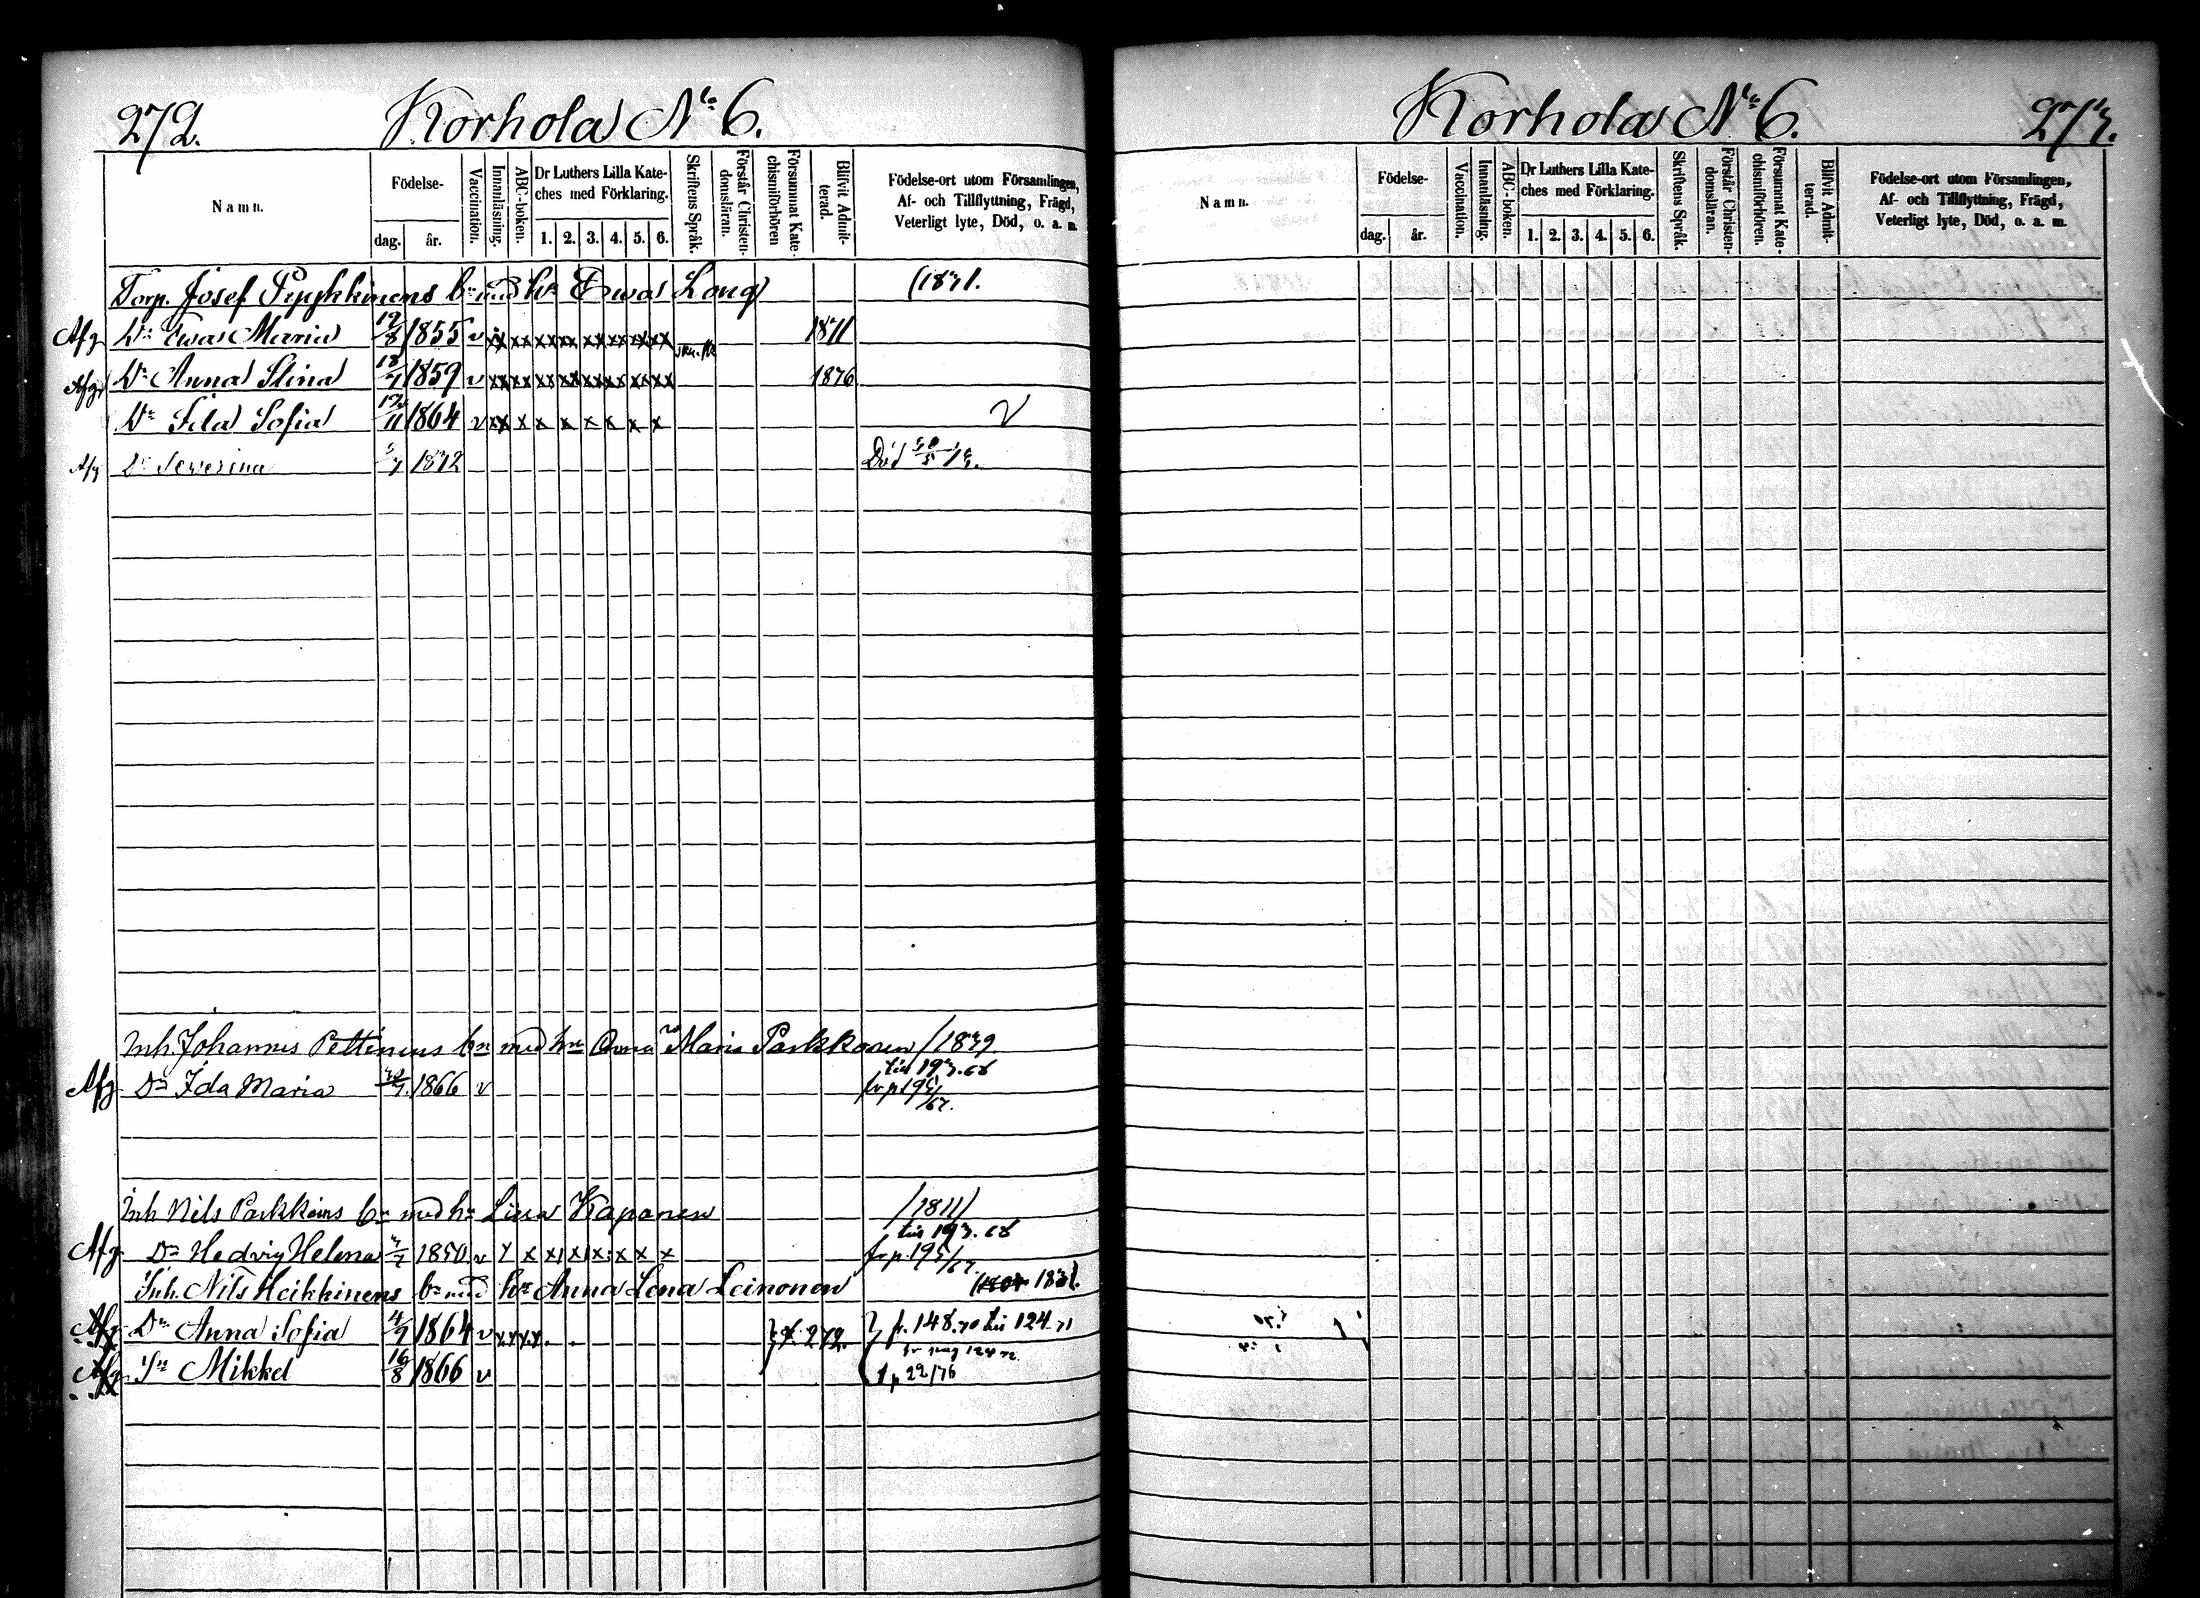 272. Korhola No 6.
Namn. Födelse- dag. år. Vaccination. Innanläsning. ABC-boken. Dr Luthers Lilla Kateches med Förklaring. 1. 2. 3. 4. 5. 6. Skriftens Språk. Förstår Christendomsläran. Försummat Katechismiförhören Blifvit Admitterad. Födelse-ort utom Församlingen, Af- och Tillflyttning, Frägd, Veterligt lyte, Död, o. a. m.
Torp. Josef Pyykkinens bn med hu Ewa Long (1831.
Afg Dr Ewa Maria 1855 v xx xx xx xx xx xx xx xx 1871
Afg Dr Anna Stina 18/7 1859 v xx xx xx xx xx xx xx xx 1876
Dr Ida Sofia 1864 v xx x x x x x x x v
Afg Dr Severina 1872 Död
Inh. Johannes Pettinens bn med hu Anna Maria Parkkonen /1839
till 193.68
Afg Dr Ida Maria 1866 v fr p 195/67.
Inh Nils Parkkins bn med hu Liisa Kaponen /1811/
till 193.68
Afg Dr Hedvig Helena 1850 v fr p. 195/67.
Inh. Nils Heikkinens bn med hu Anna Lena Leinonen 1831.
Afg Dr Anna Sofia 4/9 1864 v x x x x. 272. p. 148.70 till 124.71
Afg Sn Mikkel 16/8 1866 v
p 22/76
Korhola No 6. 273.
Namn. Födelse- dag. år. Vaccination. Innanläsning. ABC-boken. Dr Luthers Lilla Kateches med Förklaring. 1. 2. 3. 4. 5. 6. Skriftens Språk. Förstår Christendomsläran. Försummat Katechismiförhören. Blifvit Admitterad. Födelse-ort utom Församlingen, Af- och Tillflyttning, Frägd, Veterligt lyte, Död, o. a. m.